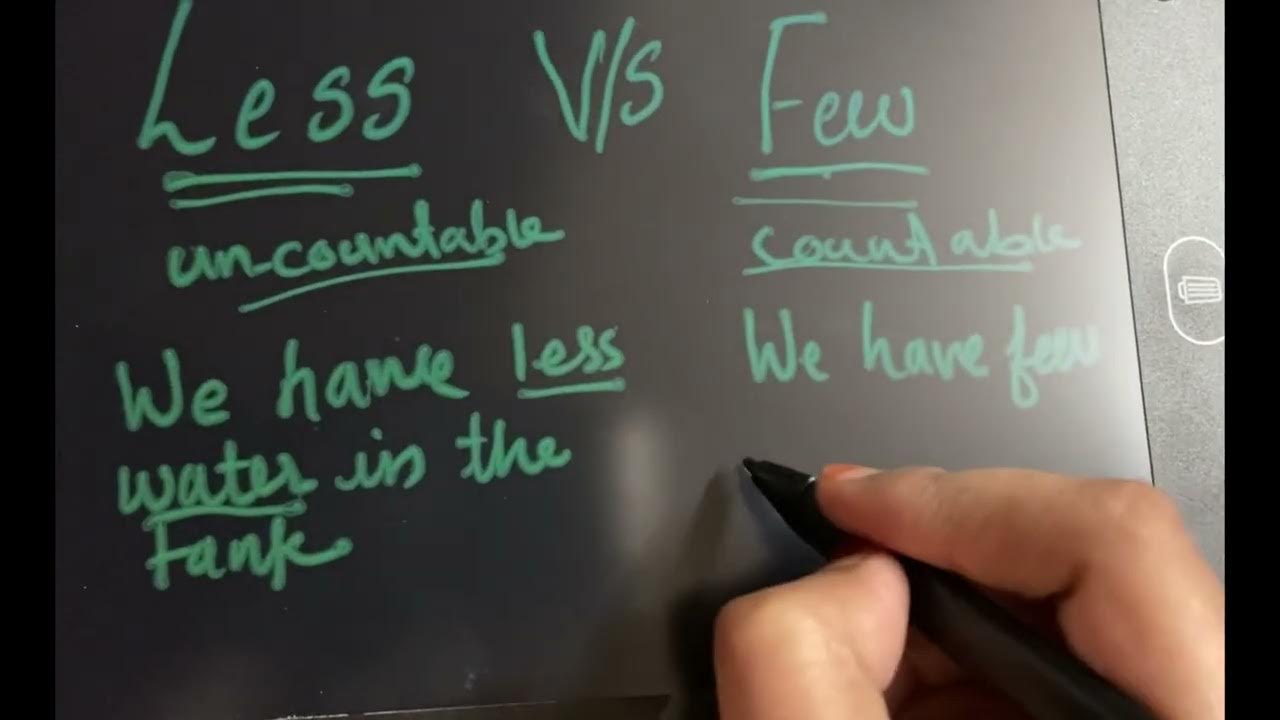 Less V/S Few
un-countable
countable
We have less
water in the
Tank
We have few